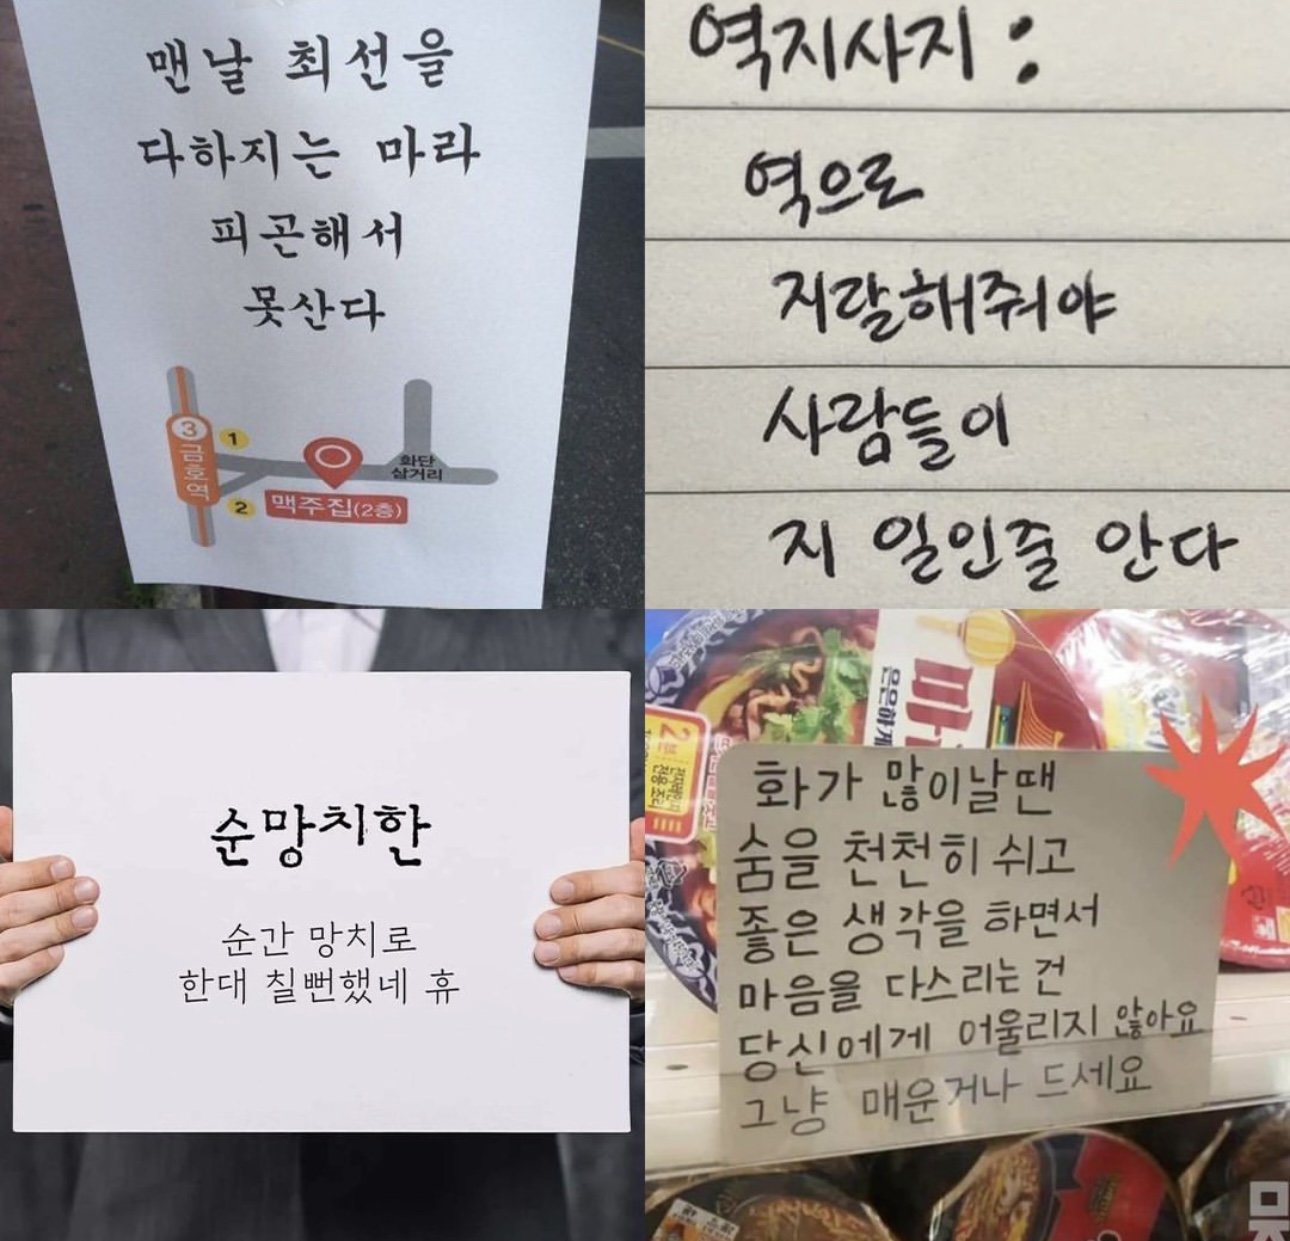 맨날 최선을
다하지는 마라
피곤해서
못산다
3
금호역
1
2
화단
삼거리
맥주집(2층)
역지사지:
역으로
지랄해줘야
사람들이
지 일인줄 안다
순망치한
순간 망치로
한대 칠뻔했네 휴
은은하게
마
화가 많이날땐
숨을 천천히 쉬고
좋은 생각을 하면서
마음을 다스리는건
당신에게 어울리지 않아요
그냥 매운거나 드세요